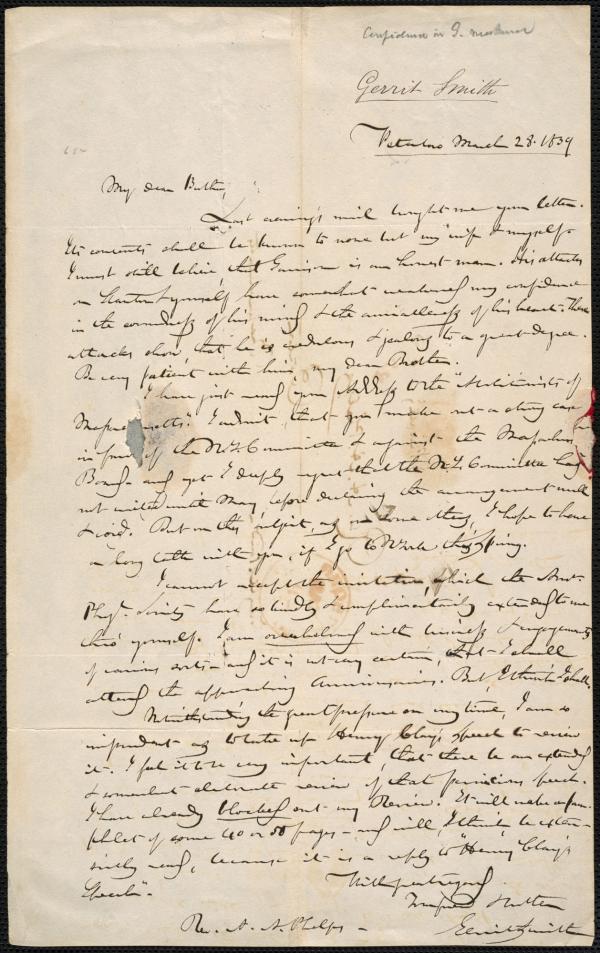 Confidence in G.
Gerrit Smith
Peterboro March 28. 1839
My dear Brother,
Last evening's mail brought me your letter.
Its contents shall be known to none but my wife & myself.
I must still believe that Garrison is an honest man. His attacks
on Stanton & myself have somewhat weakened my confidence
in the soundness of his mind & the amiableness of his heart. These
attacks show, that he is credulous & jealous to a great degree.
Be very patient with him, my dear Brother.
I have just read your Address to the "Abolitionists of
Massachusetts". I admit, that you make out a strong case
in favor of the N.Y. Committee & against the Massachusetts
Board - and yet I deeply regret that the N.Y. Committee had
not waited until May, before declaring the arrangement null
& void. But on this subject, as on some others, I hope to have
a long talk with you, if I go to N. York this Spring.
I cannot accept the invitation which the Am.
Phys. Society have so kindly & complimentarily extended to me
thro' yourself. I am overwhelmed with business & engagements
of various sorts - and it is not very certain, that I shall
attend the approaching Anniversaries. But, I think I shall.
Notwithstanding the great pressure on my time, I am so
imprudent as to take up Henry Clay's speech to review
it. I felt it to be very important, that there be an extended
& somewhat elaborate review of that pernicious speech.
I have already blocked out my Review. It will make a pam-
phlet of some 40 or 50 pages - and will, I think, be exten-
sively read, because it is a reply to "Henry Clay's
Speech".
With great regard,
Your friend & brother
Gerrit Smith
Rev. A. A. Phelps -